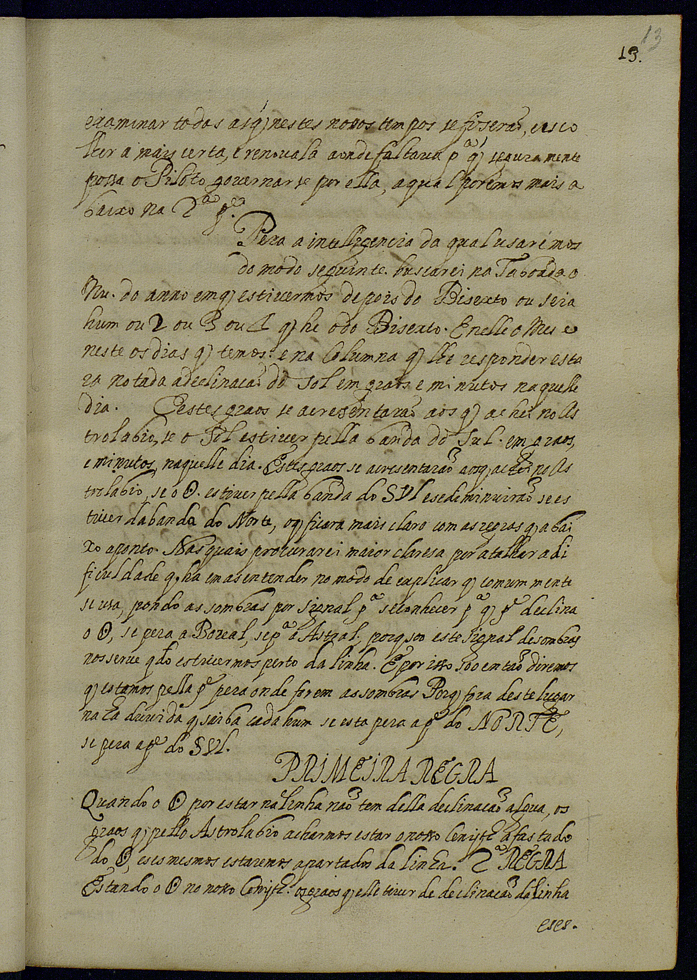 13
13.
examinar todas as q̃ nestes novos tempos se fiserão, e esco
lher a mais certa, e renovala aonde faltava pª q̃ seguramente
possa o Piloto governarse por ella, a qual poremos mais a
baixo na 2ª pᵉ.
Pera a intelligencia da qual usarémos
do modo seguinte. buscarei na Taboada o
Nu. do anno em q̃ estivermos depois do Bisexto ou seia
hum ou 2 ou 3 ou 4 q̃ he o do Bisexto. E nelle o Mes e
neste os dias q̃ temos: e na Columna q̃ lhe responder esta
ra notada a declinacaõ do Sol em graos e minutos naquelle
dia. E estes graos se acresentaraõ aos q̃ achei no As
trolabio, se o Sol estiver pella banda do Sul. em graos
e minutos, naquelle dia. Estes graos se acresentaraõ aos q̃ achei no As
trolabio, se o ʘ. estiver pella banda do SVL e se deminuiraõ se es
tiver da banda do Norte, o q̃ ficara mais claro com as regras q̃ abai
xo aponto. Nas quais procurarei maior claresa por atalhar a di
ficuldade q̃ ha em as entender no modo de explicar q̃ comummente
se usa, pondo as sombras por signal pª se conhecer pª q̃ pᵉ declina
o ʘ, se pera a Boreal, se pª o Astral, porq̃ som este signal de sombras
nos serve qdo estivermos perto da linha. E por isso so entaõ diremos
q̃ estamos pella pᵉ pera onde forem as sombras Porq̃ fora deste lugar
na ha duvida q̃ saiba cada hum se esta pera a pᵉ do NORTE,
se pera a pᵉ do SVL.
PRIMEIRA REGRA
Quando o ʘ por estar na linha naõ tem della declinacaõ algua, os
graos q̃ pello Astrolabio acharmos estar o nosso Cenith afastado
do ʘ, eses mesmos estaremos apartados da linha. 2ª REGRA
Estando o ʘ no nosso Cenith. os graos q̃ elle tiver de declinacaõ da linha
eses.